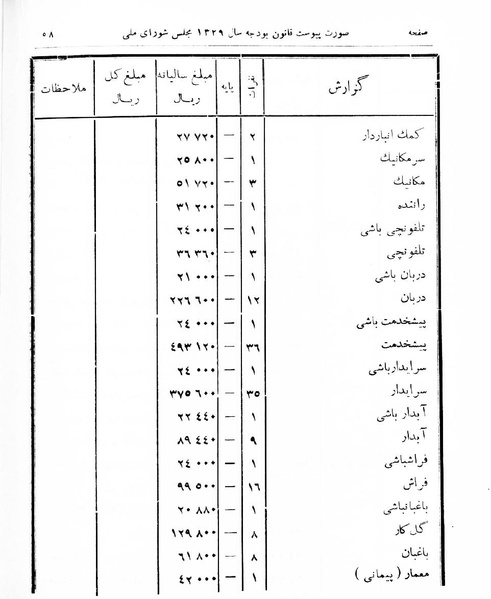 صفحه صورت پیوست قانون بودجه سال ۱۳۲۹ مجلس شورای ملی ۵۸
گزارش نفرات پایه مبلغ سالیانه ریال مبلغ کل ریال ملاحظات
کمك انباردار ۲ — ۲۷ ۷۲۰
سرمکانیك ۱ — ۲۵ ۸۰۰
مکانیك ۳ — ۵۱ ۷۲۰
راننده ۱ — ۳۱ ۲۰۰
تلفونچی باشی ۱ — ۲٤ ۰۰۰
تلفونچی ۳ — ۳٦ ۳٦۰
دربان باشی ۱ — ۲۱ ۰۰۰
دربان ۱۲ — ۲۲٦ ٦۰۰
پیشخدمت باشی ۱ — ۲٤ ۰۰۰
پیشخدمت ۳٦ — ٤۹۳ ۱۲۰
سرایدارباشی ۱ — ۲٤ ۰۰۰
سرایدار ۳۵ — ۳۷۵ ٦۰۰
آبدار باشی ۱ — ۲۲ ٤٤۰
آبدار ۹ — ۸۹ ٤٤۰
فراشباشی ۱ — ۲٤ ۰۰۰
فراش ۱٦ — ۹۹ ۵۰۰
باغبانباشی ۱ — ۲۰ ۸۸۰
گل کار ۸ — ۱۲۹ ۸۰۰
باغبان ۸ — ٦۱ ۸۰۰
معمار ( پیمانی ) ۱ — ٤۲ ۰۰۰